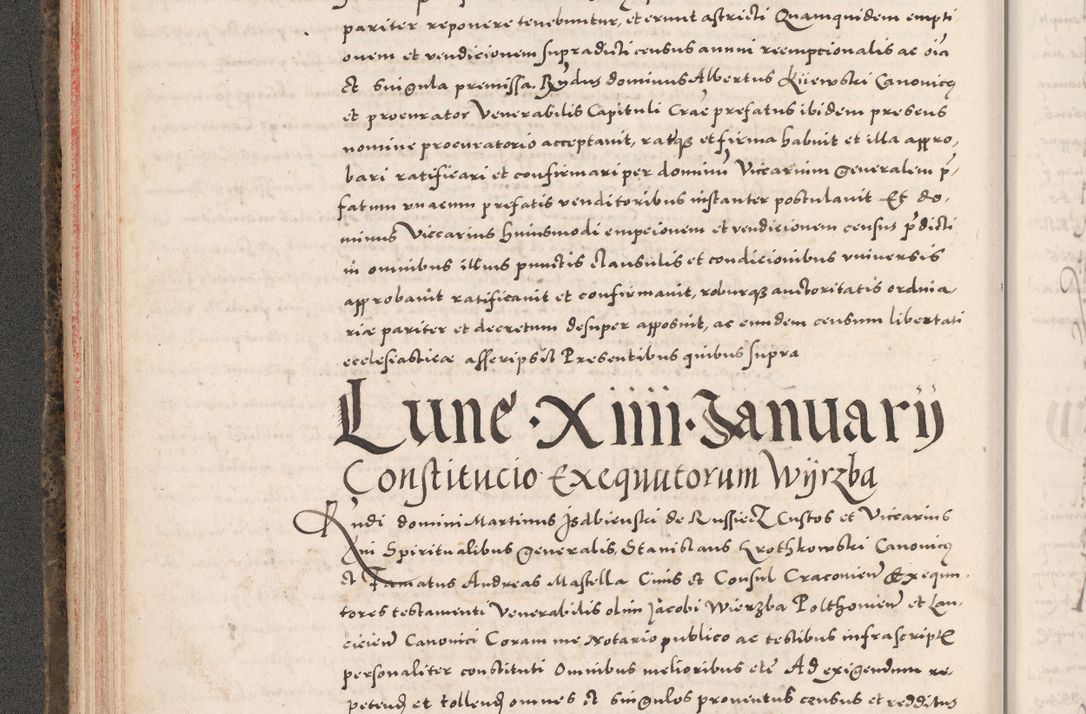 pariter reponere tenebuntur, et erunt astricti Quamquidem empti
onem et vendicionem supradicti census annui reempcionalis ac oia
et singula premissa. Rndus dominus Albertus Kijewski Canonicq
et procurator Venerabilis Capituli Crac prefatus ibidem presens
nomine procuratorio acceptauit, ratqz et firma habuit et illa appro,
bari ratificari et confirmari per dominu Viccarium Generalem p,
fatum vnacum prefatis venditoribus instanter postulauit Et do,
minus Viccarius huiusmodi empcionem et vendicionem census pdicti
in omnibus illius punctis clausulis et condicionibus vniuersis
approbauit ratificauit et confirmauit, roburqz auctoritatis ordina,
riæ pariter et decretum desuper apposuit, ac eundem censum libertati
ecclesiasticæ asscripsit Presentibus quibus supra
Lune · Xiiii · Januarij
Constitucio Exequutorum Wijrzba
Rndi domini Martinus Isdbienski de Russiecz Custos et Viccarius
in Spiritualibus Generalis, Stanislaus Krothkowski Canonicq
et Famatus Andreas Mastella Ciuis et Consul Cracovien Exequu,
tores testamenti Venerabilis olim Jacobi Wierzba Polthovien et Lan,
cicien Canonici Coram me Notario publico ac testibus infrascript
personaliter constituti Omnibus melioribus etc Ad exigendum re,
petend et tollend omnes et singulos prouentus census et redditus